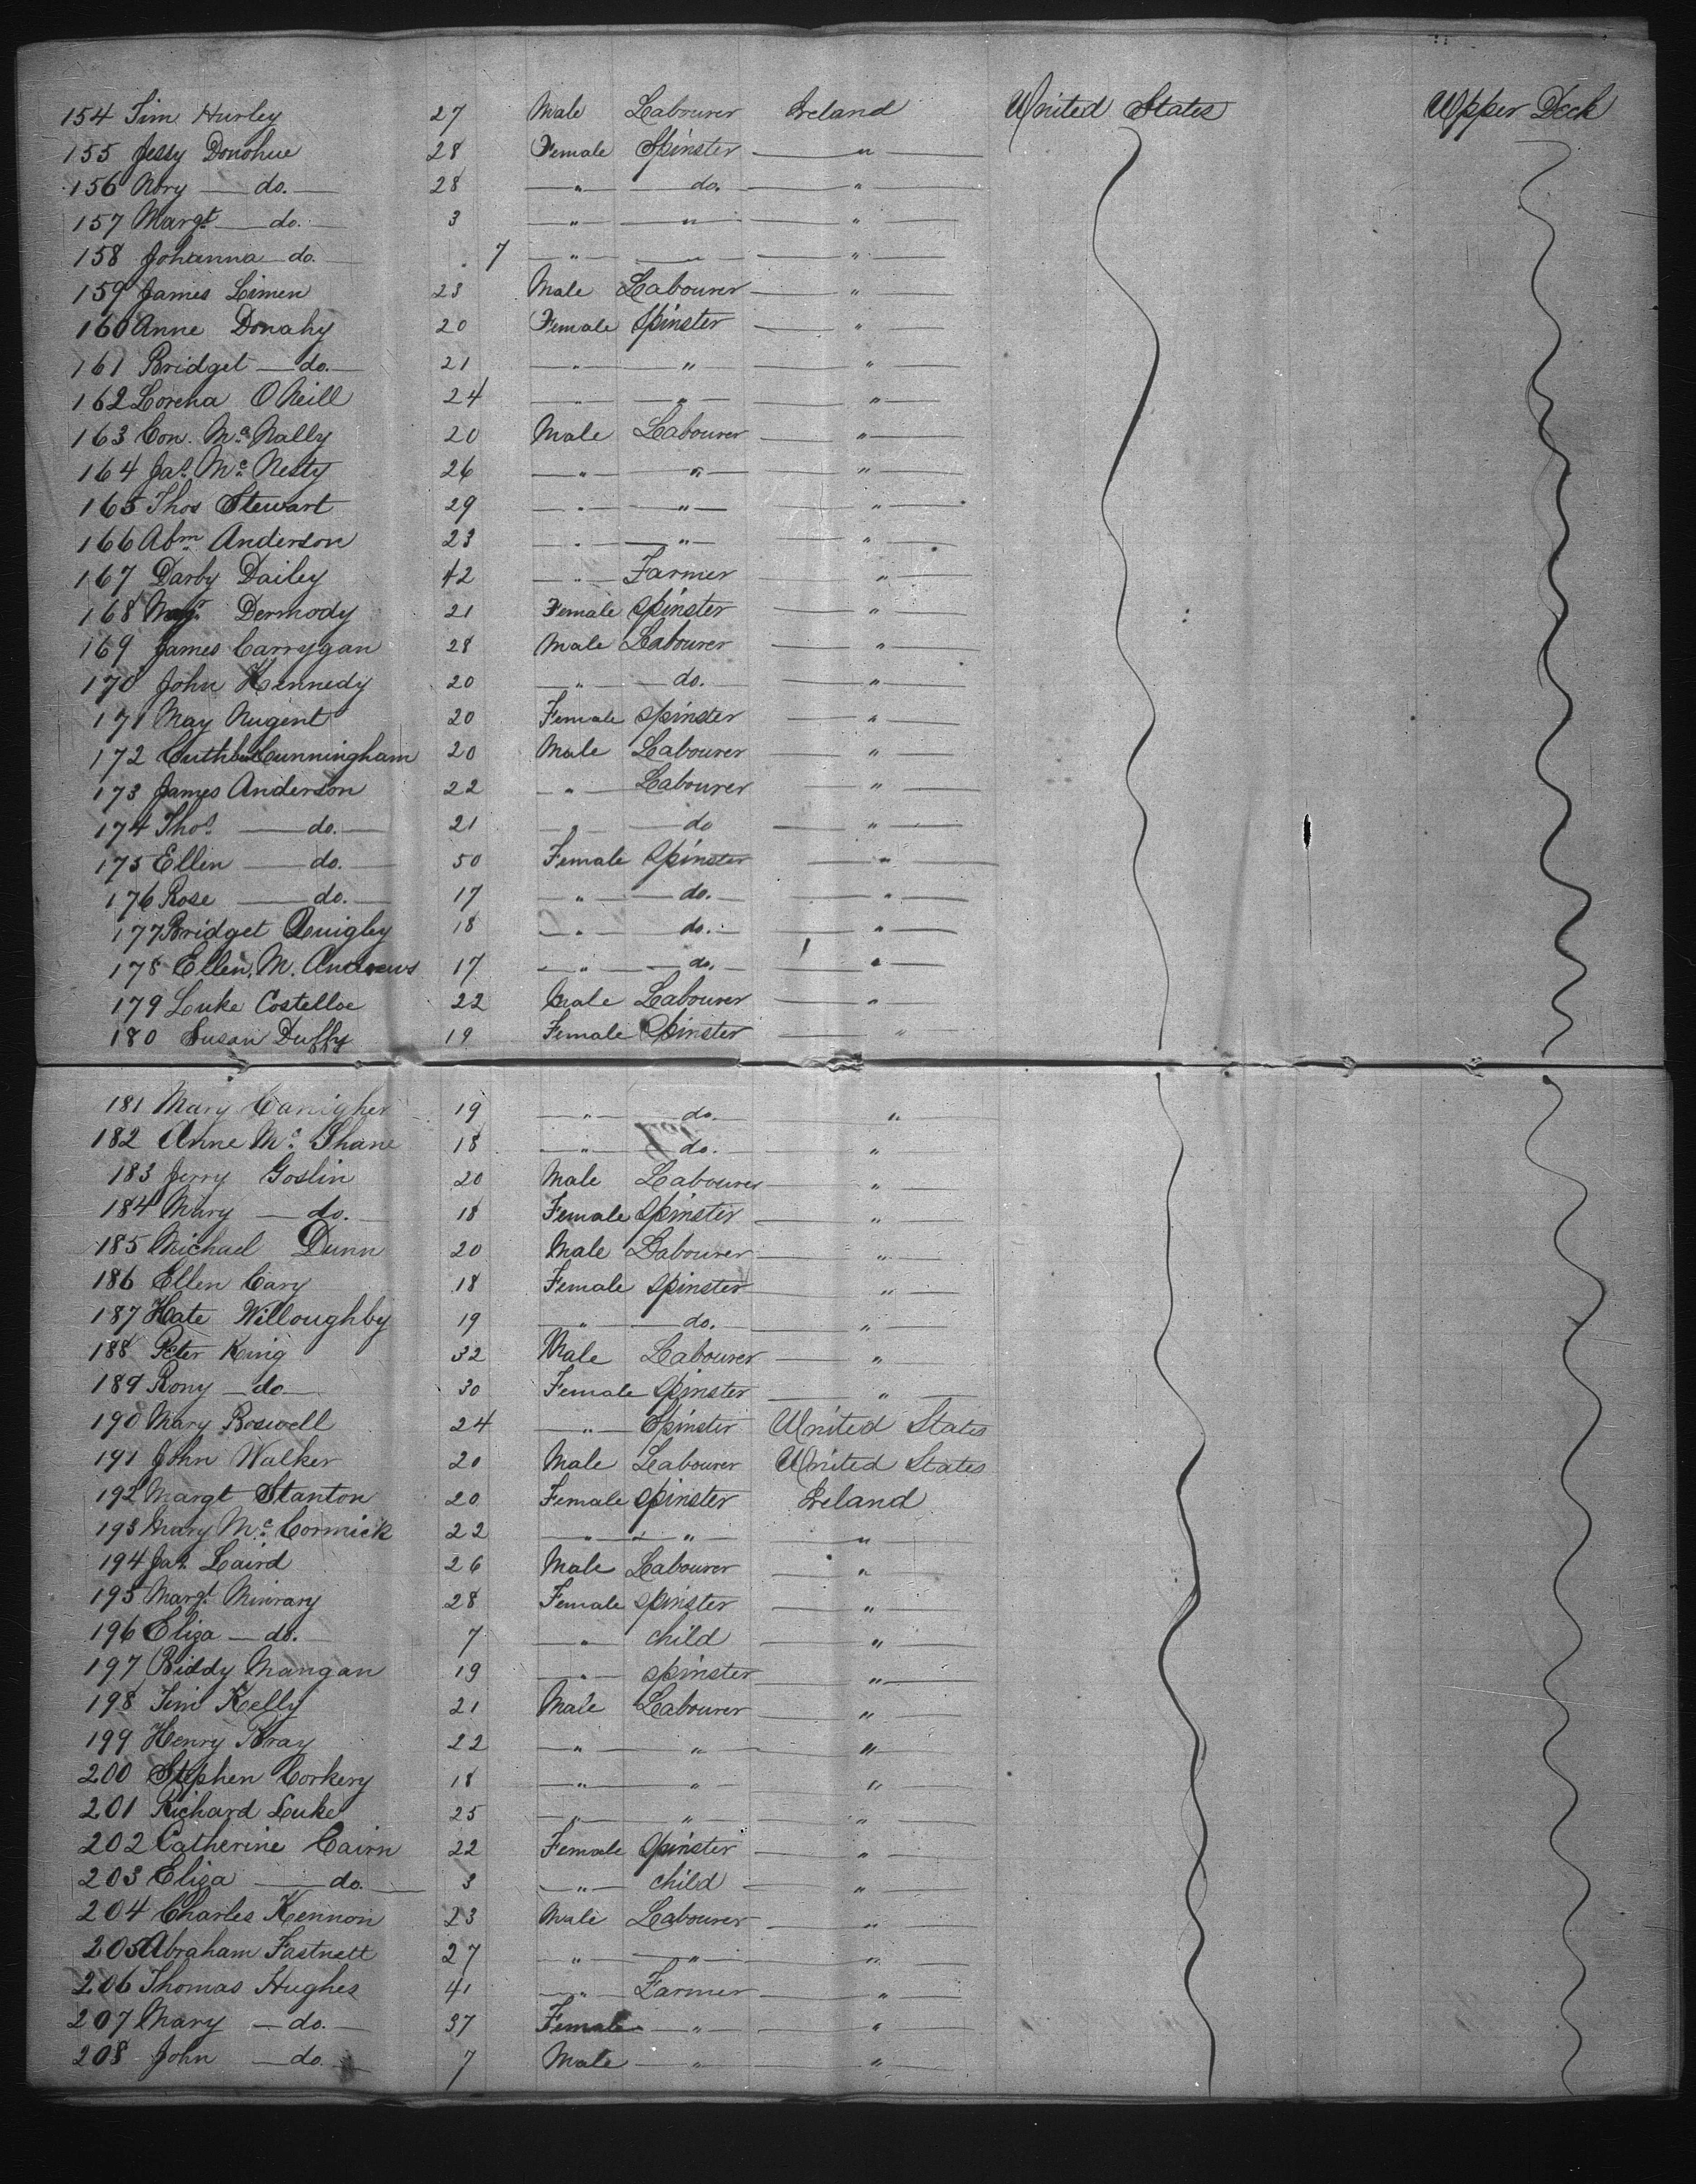 154 Tim Hurley 27 Male Labourer Ireland United States Upper Deck
155 Jessy Donohue 28 Female Spinster — " —
156 Nory — do. — 28 — " — do. — " —
157 Margt — do. — 3 — " — " — " —
158 Johanna — do. — 7 — " — " — " —
159 James Limen 23 Male Labourer — " —
160 Anne Donahy 20 Female Spinster — " —
161 Bridget — do. — 21 — " — " — " —
162 Lorena O Neill 24 — " — " — " —
163 Con. Mc Nally 20 Male Labourer — " —
164 Jas. Mc Nesty 26 — " — " — " —
165 Thos Stewart 29 — " — " — " —
166 Abm. Anderson 23 — " — " — " —
167 Darby Dailey 42 — " — Farmer — " —
168 Dermody 21 Female Spinster — " —
169 James Carrygan 28 Male Labourer — " —
170 John Kennedy 20 — " — do. — " —
171 May Nugent 20 Female Spinster — " —
172 Cunningham 20 Male Labourer — " —
173 James Anderson 22 — " — Labourer — " —
174 Thos. — do. — 21 — " — do — " —
175 Ellen — do. — 50 Female Spinster — " —
176 Rose — do. — 17 — " — do. — " —
177 Bridget Quigley 18 — " — do. — " —
178 Ellen M. Andrews 17 — " — do. — " —
179 Luke Costelloe 22 Male Labourer — " —
180 Susan Duffy 19 Female Spinster — " —
181 Mary Canigher 19 — " — do. — "
182 Anne Mc Shane 18 — " — do. — "
183 Jerry Goslin 20 Male Labourer — " —
184 Mary — do. — 18 Female Spinster — " —
185 Michael Dunn 20 Male Labourer — " —
186 Ellen Cary 18 Female Spinster — " —
187 Kate Willoughby 19 — " — do. — " —
188 Peter King 32 Male Labourer — " —
189 Rony — do — 30 Female Spinster — " —
190 Mary Boswell 24 — " — Spinster United States
191 John Walker 20 Male Labourer United States
192 Margt Stanton 20 Female Spinster Ireland
193 Mary Mc Cormick 22 — " — " — " —
194 Jas. Laird 26 Male Labourer — " —
195 Margt. Minrary 28 Female Spinster — " —
196 Eliza — do. — 7 — " — child — " —
197 Biddy Mangan 19 — " — spinster — " —
198 Tim Kelly 21 Male Labourer — " —
199 Henry Bray 22 — " — " — " —
200 Stephen Corkery 18 — " — " — " —
201 Richard Luke 25 — " — " — " —
202 Catherine Cairn 22 Female Spinster — " —
203 Eliza — do. — 3 — " — child — " —
204 Charles Kennon 23 Male Labourer — " —
205 Abraham Fastnett 27 — " — " — " —
206 Thomas Hughes 41 — " — Farmer — " —
207 Mary — do. — 37 Female — " — " —
208 John — do. — 7 Male — " — " —